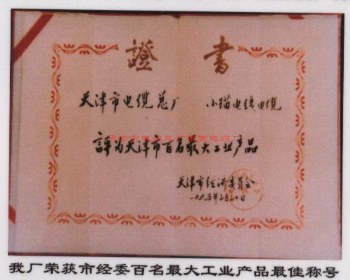 證書
天津市电缆总厂 小猫电线电缆
評为天津市百名最大工业产品
天津市经济委员会
我厂荣获市经委百名最大工业产品最佳称号